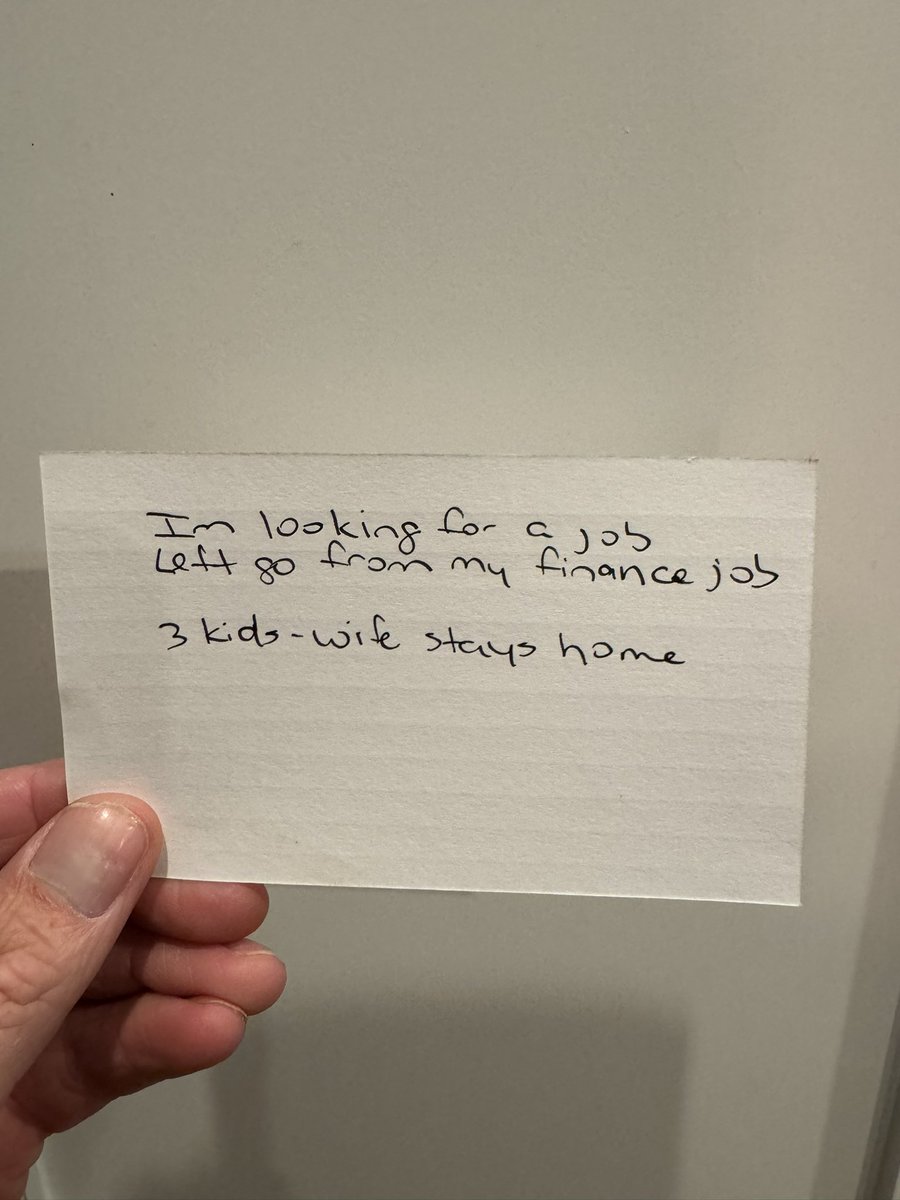 Im looking for a job
Left go from my finance job
3 kids - wife stays home